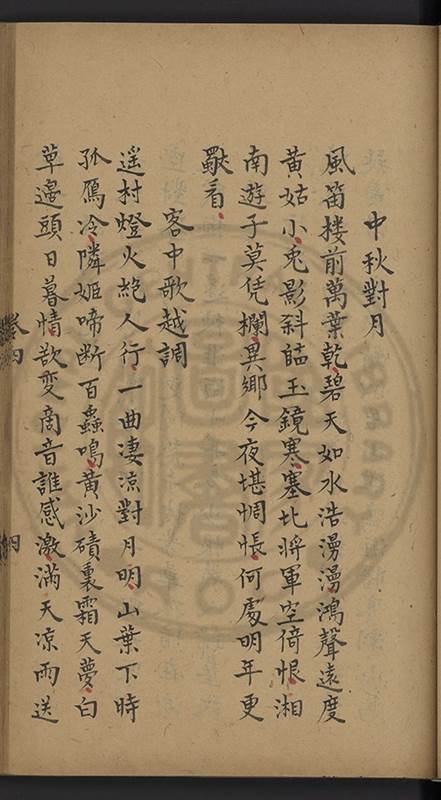 中秋對月
風笛楼前萬葉乾碧天如水浩漫漫鴻聲遠度
黄姑小兎影斜臨玉鏡寒塞北將軍空倚恨湘
南遊子莫凭欄異鄉今夜堪惆悵何處明年更
歡看
客中歌越調
遥村燈火絶人行一曲凄凉對月明山葉下時
孤鴈冷隣姬啼断百蟲鳴黄沙磧裏霜天夢白
草邉頭日暮情欲变商音誰感激滿天凉雨送